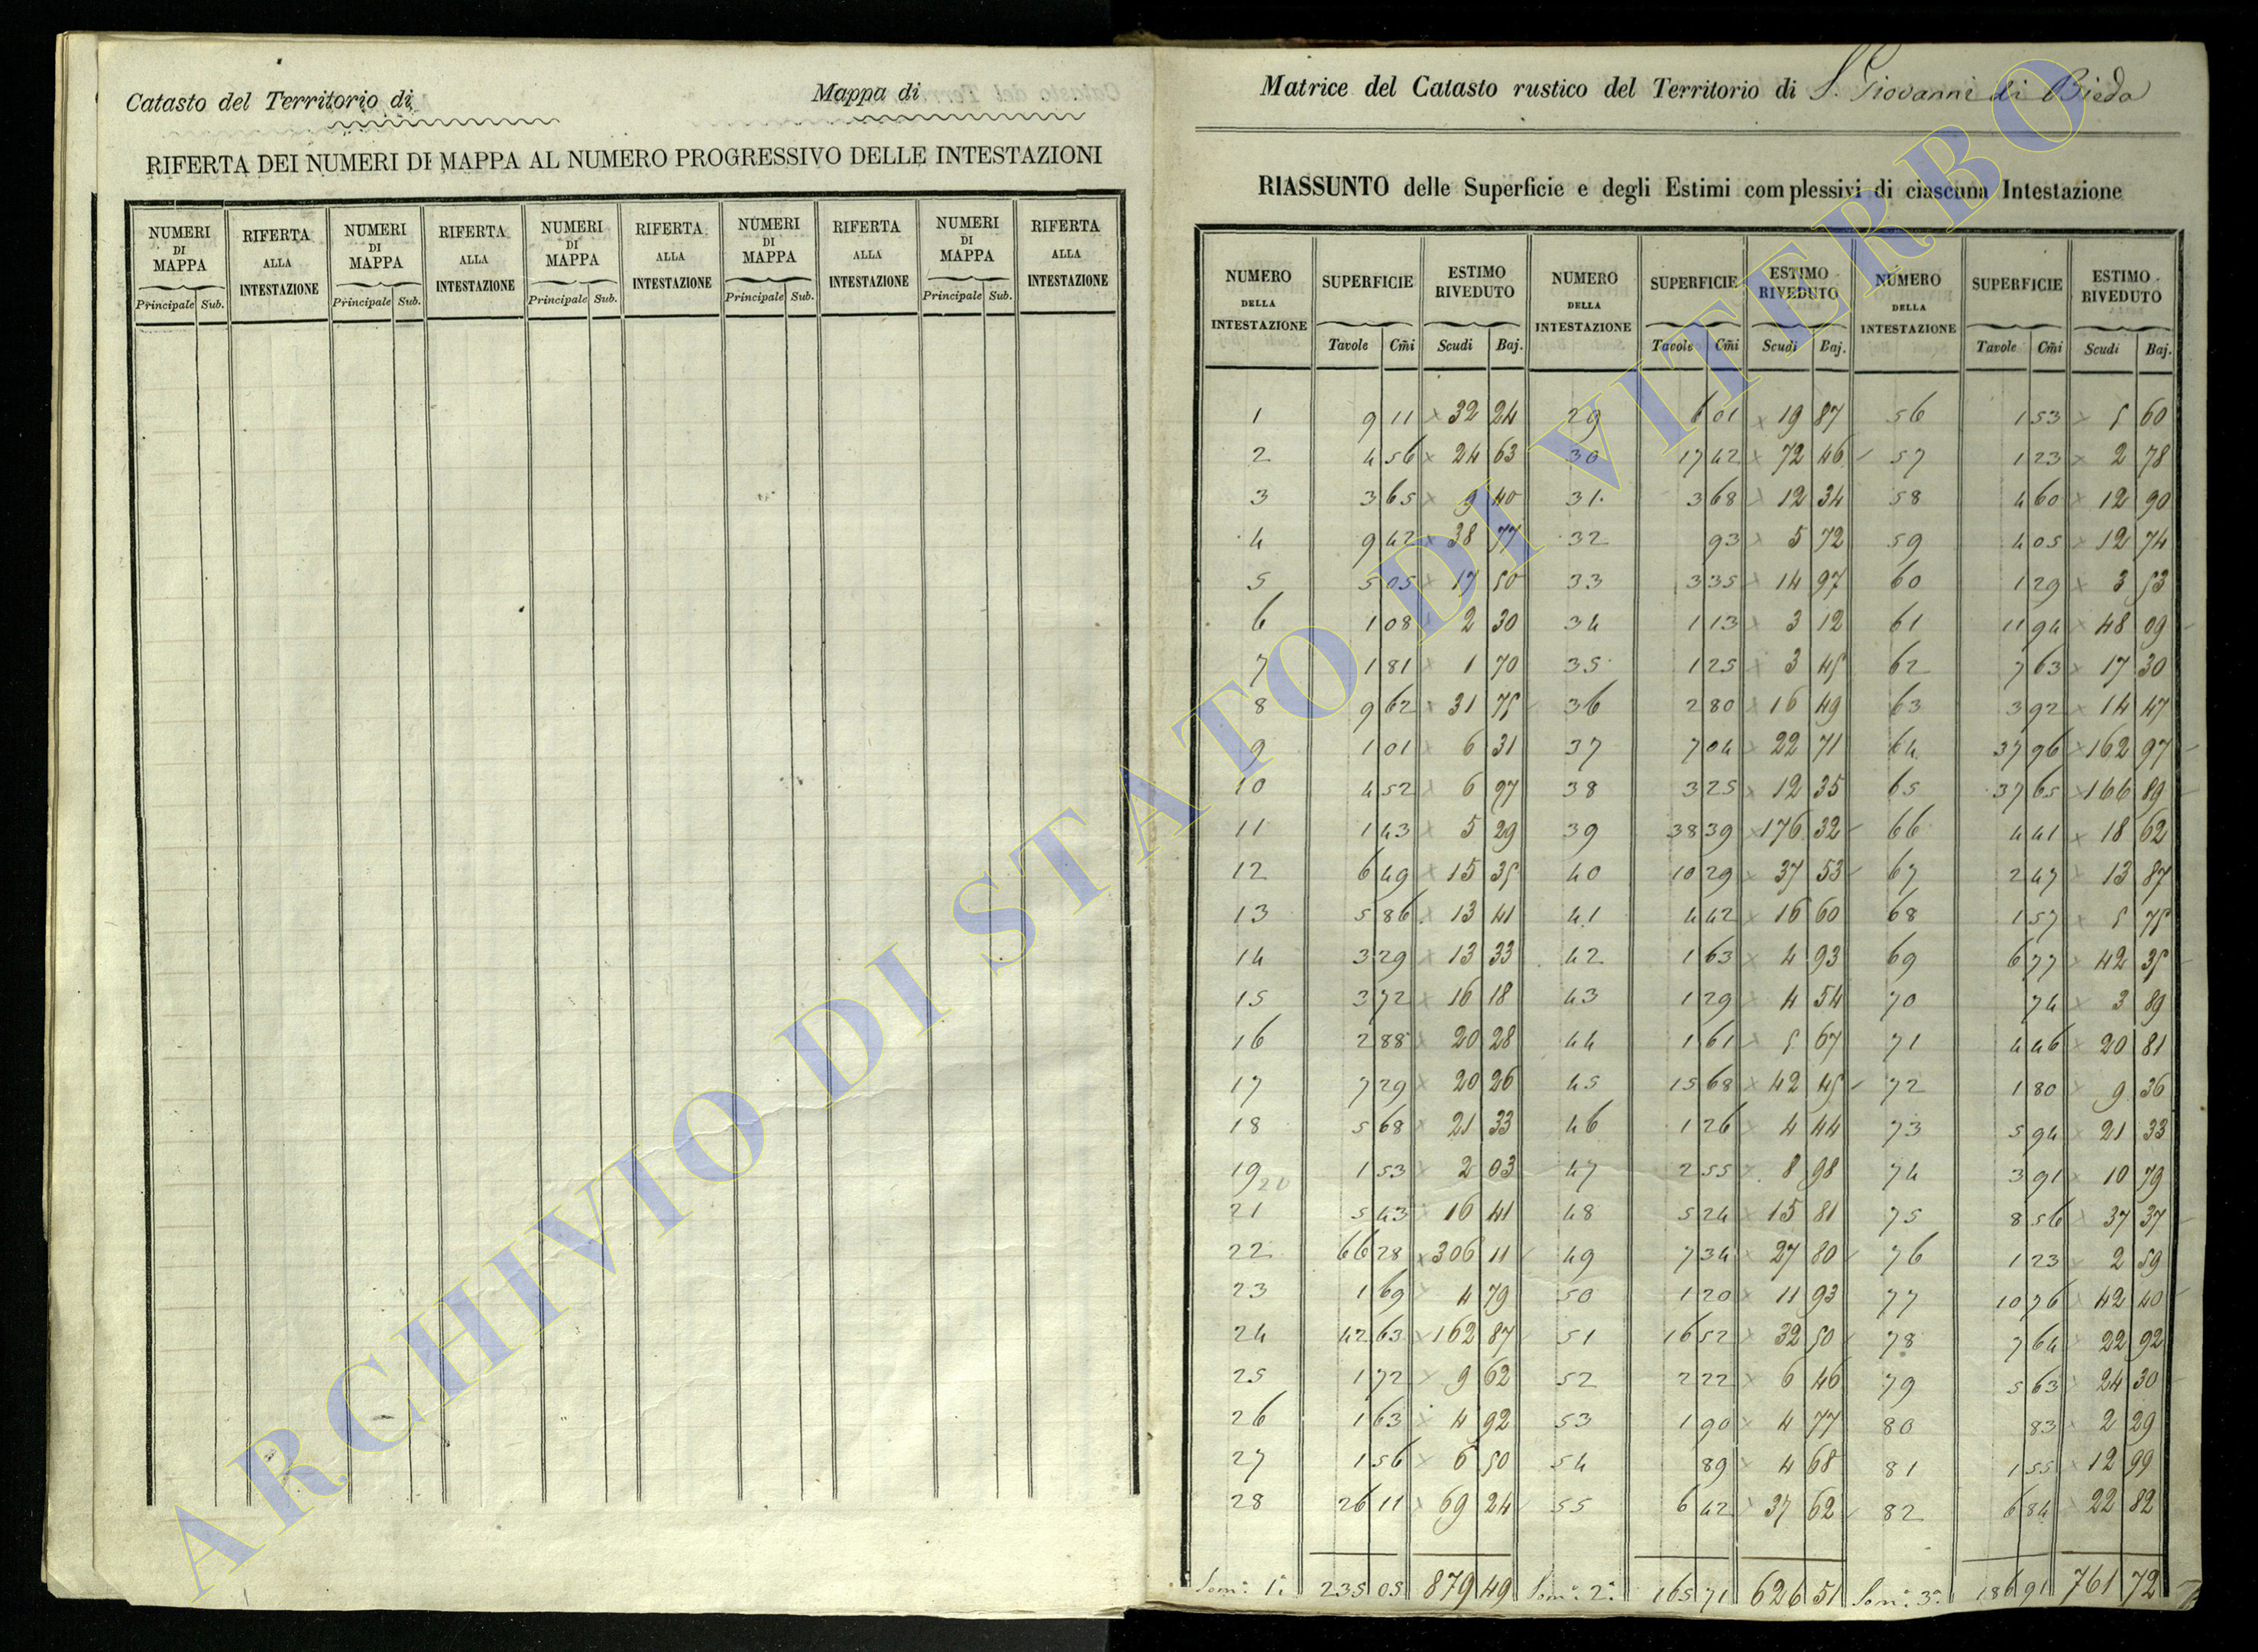 Catasto del Territorio di Mappa di
RIFERTA DEI NUMERI DI MAPPA AL NUMERO PROGRESSIVO DELLE INTESTAZIONI
NUMERI DI MAPPA RIFERTA ALLA INTESTAZIONE NUMERI DI MAPPA RIFERTA ALLA INTESTAZIONE NUMERI DI MAPPA RIFERTA ALLA INTESTAZIONE NUMERI DI MAPPA RIFERTA ALLA INTESTAZIONE NUMERI DI MAPPA RIFERTA ALLA INTESTAZIONE
Principale Sub. Principale Sub. Principale Sub. Principale Sub. Principale Sub.
Matrice del Catasto rustico del Territorio di S. Giovanni di Bieda
RIASSUNTO delle Superficie e degli Estimi complessivi di ciascuna Intestazione
NUMERO DELLA INTESTAZIONE SUPERFICIE ESTIMO RIVEDUTO NUMERO DELLA INTESTAZIONE SUPERFICIE ESTIMO RIVEDUTO NUMERO DELLA INTESTAZIONE SUPERFICIE ESTIMO RIVEDUTO
Tavole Cm̃i Scudi Baj. Tavole Cm̃i Scudi Baj. Tavole Cm̃i Scudi Baj.
1 9 11 x 32 24 29 6 01 x 19 87 56 1 53 x 5 60
2 4 56 x 24 63 30 17 42 x 72 46 57 1 23 x 2 78
3 3 65 x 9 40 31. 3 68 x 12 34 58 4 60 x 12 90
4 9 42 x 38 77 32 93 x 5 72 59 4 05 x 12 74
5 5 05 x 17 50 33 3 35 x 14 97 60 1 29 x 3 53
6 1 08 x 2 30 34 1 13 x 3 12 61 11 94 x 48 09
7 1 81 x 1 70 35 1 25 x 3 45 62 7 63 x 17 30
8 9 62 x 31 75 36 2 80 x 16 49 63 3 92 x 14 47
9 1 01 x 6 31 37 7 04 x 22 71 64 37 96 x 162 97
10 4 52 x 6 97 38 3 25 x 12 35 65 37 65 x 166 89
11 1 43 x 5 29 39 38 39 x 176 32 66 4 41 x 18 62
12 6 49 x 15 35 40 10 29 x 37 53 67 2 47 x 13 87
13 5 86 x 13 41 41 4 42 x 16 60 68 1 57 x 5 75
14 3 29 x 13 33 42 1 63 x 4 93 69 6 77 x 42 35
15 3 72 x 16 18 43 1 29 x 4 54 70 74 x 3 89
16 2 88 x 20 28 44 1 61 x 5 67 71 4 46 x 20 81
17 7 29 x 20 26 45 15 68 x 42 45 72 1 80 x 9 36
18 5 68 x 21 33 46 1 26 x 4 44 73 5 94 x 21 33
19 20 1 53 x 2 03 47 2 55 x 8 98 74 3 91 x 10 79
21 5 43 x 16 41 48 5 24 x 15 81 75 8 56 x 37 37
22 66 28 x 306 11 49 7 34 x 27 80 76 1 23 x 2 59
23 1 69 x 4 79 50 1 20 x 11 93 77 10 76 x 42 40
24 42 63 x 162 87 51 16 52 x 32 50 78 7 64 x 22 92
25 1 72 x 9 62 52 2 22 x 6 46 79 5 63 x 24 30
26 1 63 x 4 92 53 1 90 x 4 77 80 83 x 2 29
27 1 56 x 6 50 54 89 x 4 68 81 1 55 x 12 99
28 26 11 x 69 24 55 6 42 x 37 62 82 6 84 x 22 82
Som.ª 1.ª 235 05 879 49 Som.ª 2.ª 165 71 626 51 Som.ª 3.ª 186 91 761 72
ARCHIVIO DI STATO DI VITERBO